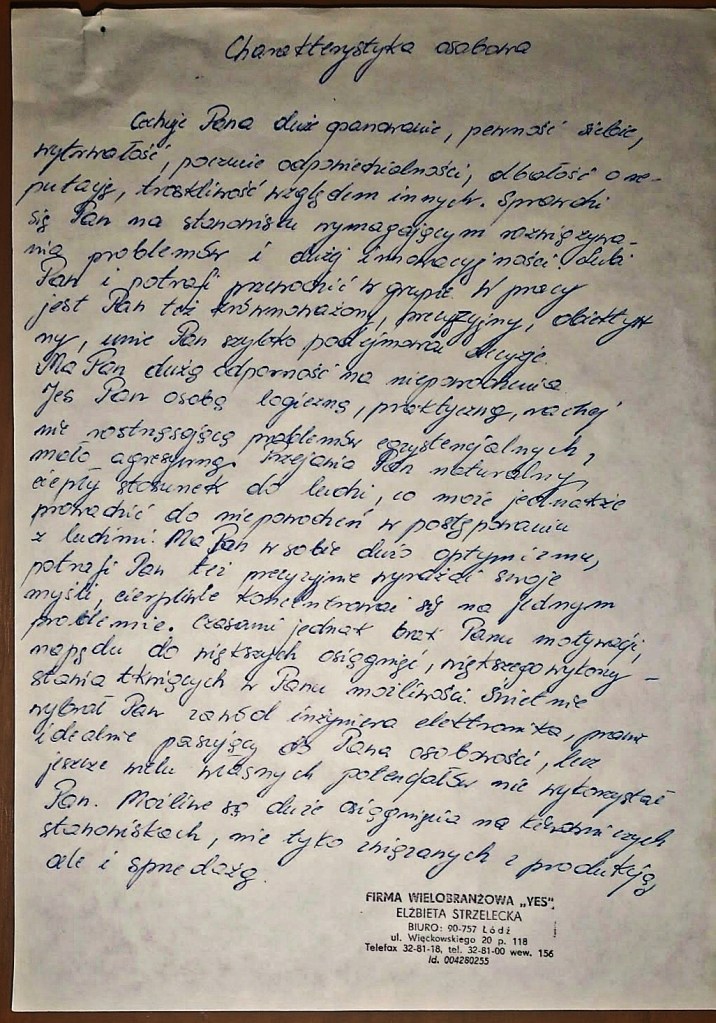 Charakterystyka osobowa
Cechuje Pana duże opanowanie, pewność siebie,
wytrwałość, poczucie odpowiedzialności, dbałość o re-
putację, troskliwość względem innych. Sprawdzi
się Pan na stanowisku wymagającym rozwiązywa-
nia problemów i dużej innowacyjności. Lubi
Pan i potrafi przewodzić w grupie. W pracy
jest Pan też zrównoważony, precyzyjny, obiektyw
ny, umie Pan szybko podejmować decyzje.
Ma Pan dużą odporność na niepowodzenia
Jes Pan osobą logiczną, praktyczną, raczej
nie roztrząsającą problemów egzystencjalnych,
mało agresywną. Przejawia Pan naturalny,
ciepły stosunek do ludzi, co może jednakże
prowadzić do niepowodzeń w postępowaniu
z ludźmi. Ma Pan w sobie dużo optymizmu,
potrafi Pan też precyzyjnie wyrażać swoje
myśli, cierpliwie koncentrować się na jednym
problemie. Czasami jednak brak Panu motywacji,
napędu do większych osiągnięć, większego wykorzy-
stania tkwiących w Panu możliwości. Świetnie
wybrał Pan zawód inżyniera elektronika, prawie
idealnie pasujący do Pana osobowości, lecz
jeszcze wielu własnych potencjałów nie wykorzystał
Pan. Możliwe są duże osiągnięcia na kierowniczych
stanowiskach, nie tylko związanych z produkcją,
ale i sprzedażą.
FIRMA WIELOBRANŻOWA „YES"
ELŻBIETA STRZELECKA
BIURO: 90-757 Łódź
ul. Więckowskiego 20 p. 118
Telefax 32-81-18, tel. 32-81-00 wew. 156
Id. 004280255